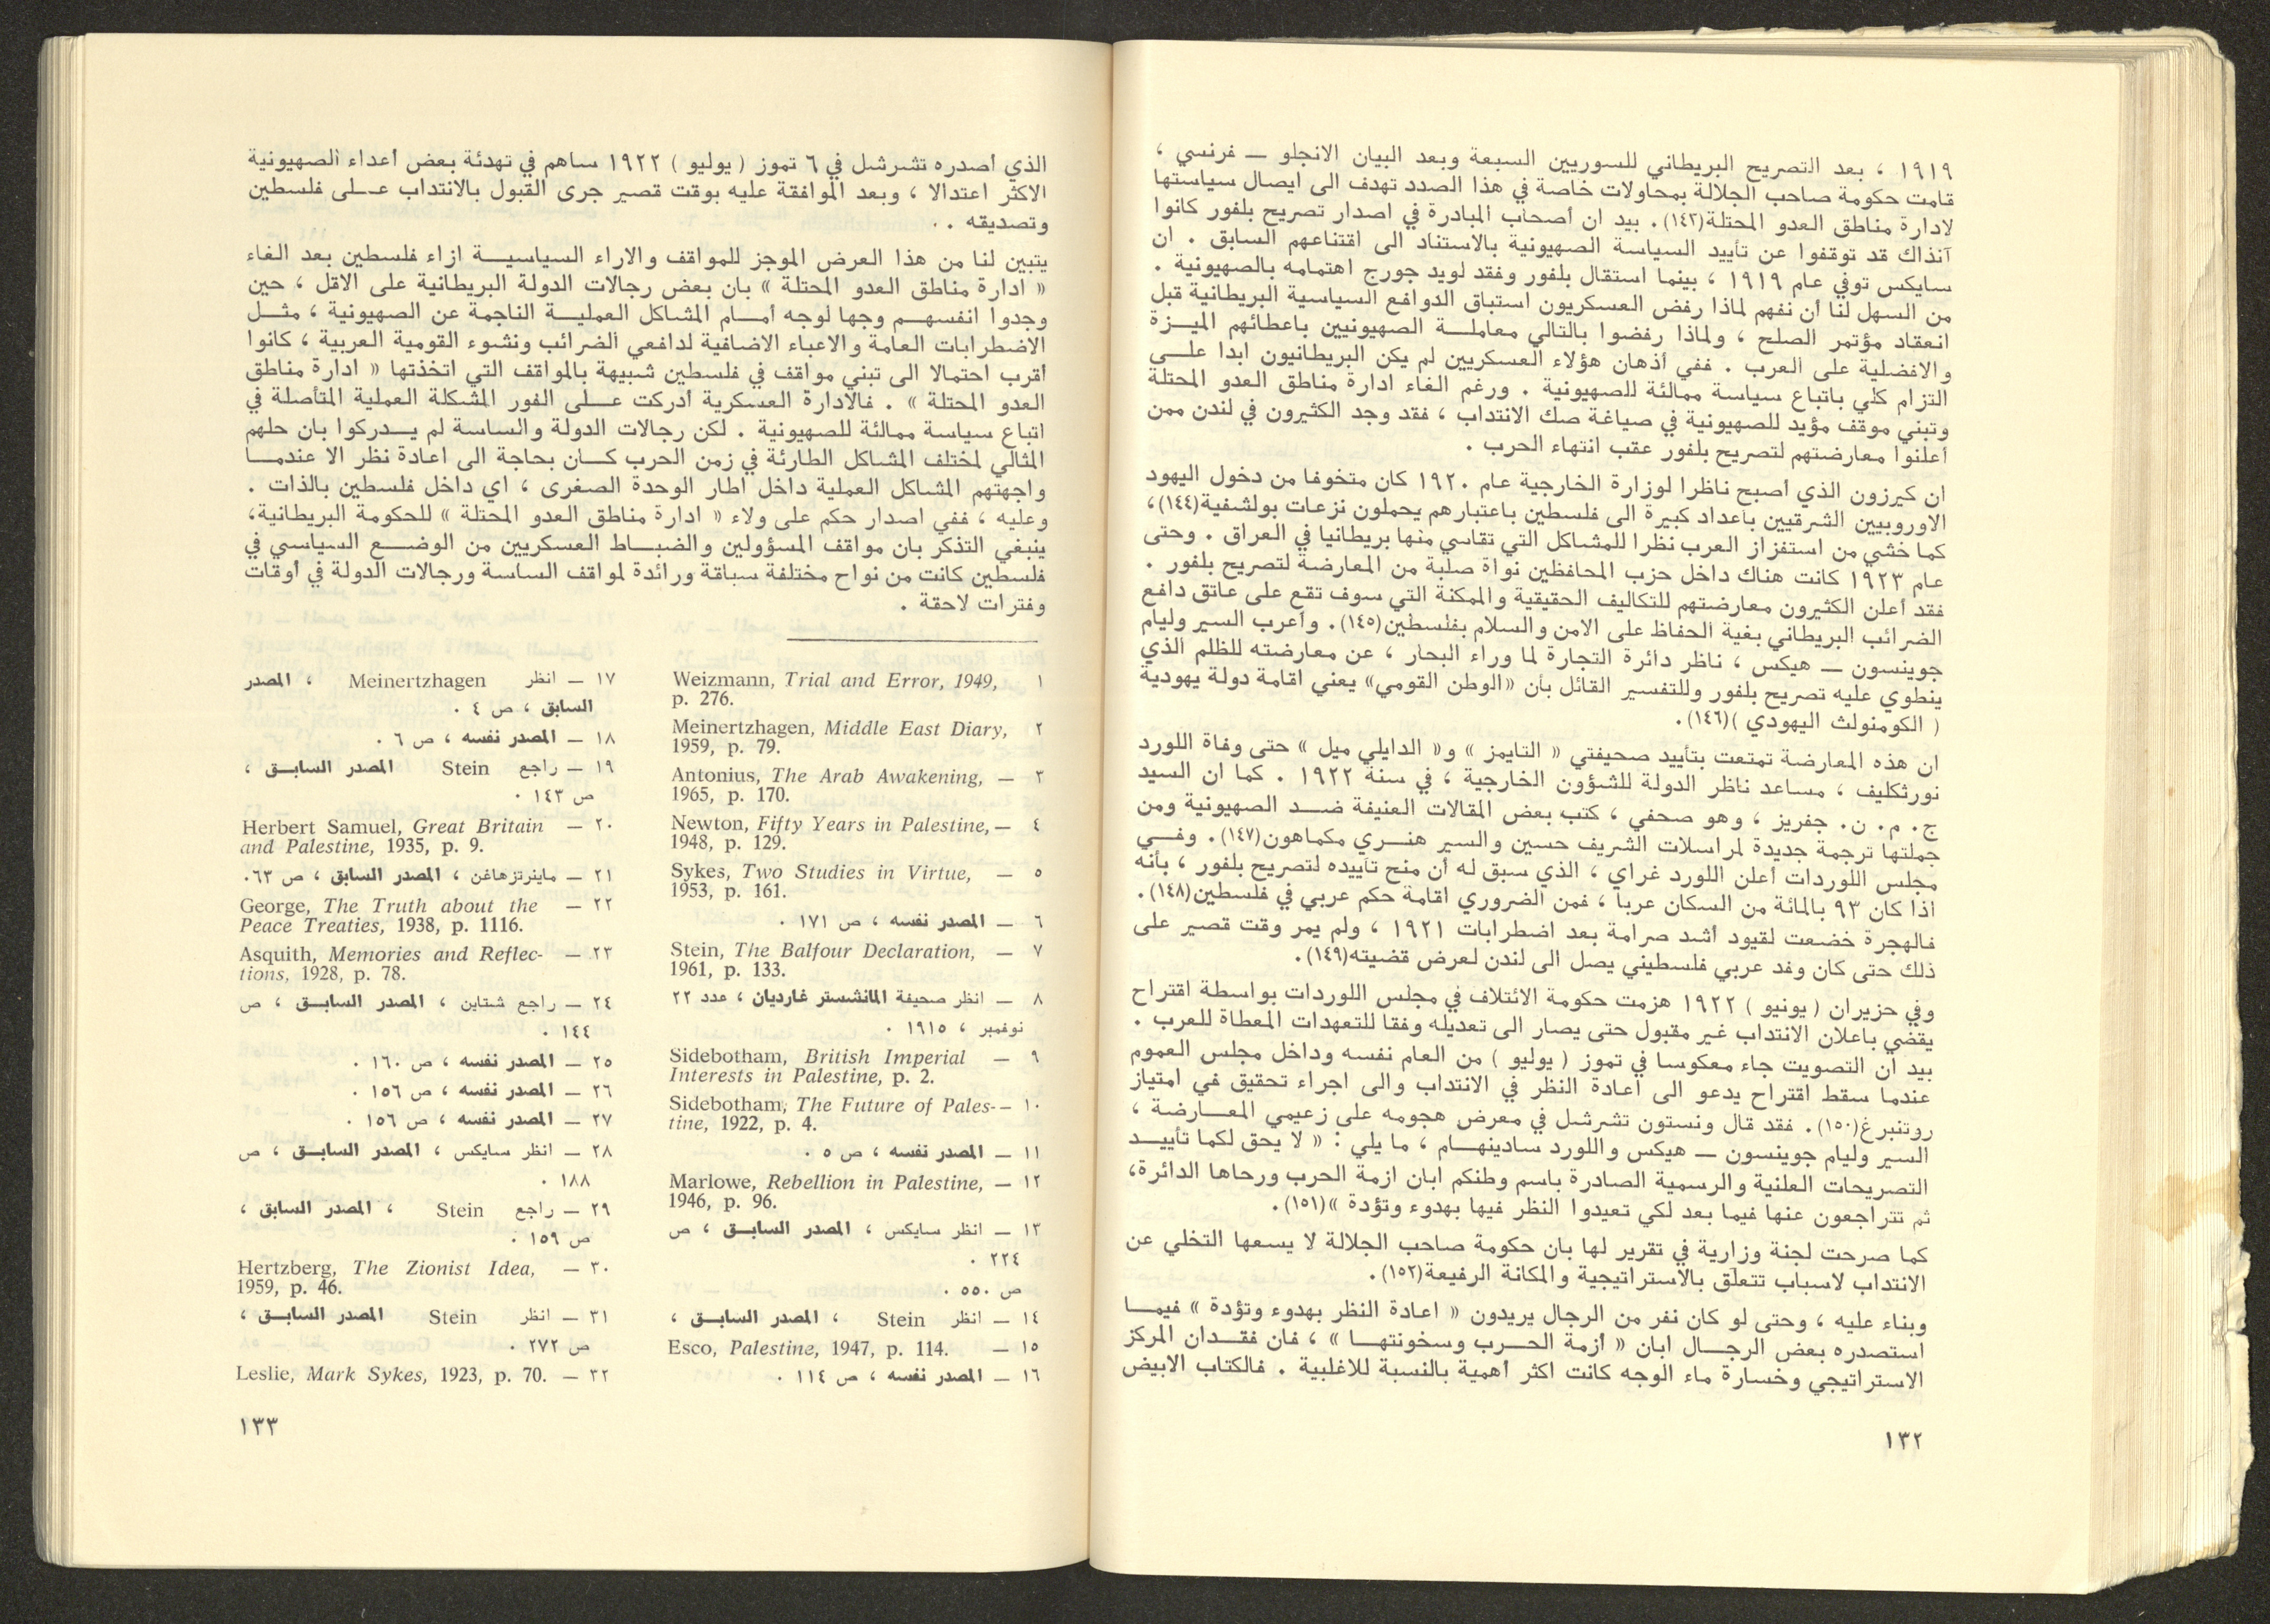 ١٩١٩ ، بعد التصريح البريطاني للسوريين السبعة وبعد البيان الانجلو — فرنسي ،
قامت حكومة صاحب الجلالة بمحاولات خاصة في هذا الصدد تهدف الى ايصال سياستها
لادارة مناطق العدو المحتلة(١٤٣). بيد ان أصحاب المبادرة في اصدار تصريح بلفور كانوا
آنذاك قد توقفوا عن تأييد السياسة الصهيونية بالاستناد الى اقتناعهم السابق . ان
سايكس توفي عام ١٩١٩ ، بينما استقال بلفور وفقد لويد جورج اهتمامه بالصهيونية .
من السهل لنا أن نفهم لماذا رفض العسكريون استباق الدوافع السياسية البريطانية قبل
انعقاد مؤتمر الصلح ، ولماذا رفضوا بالتالي معاملة الصهيونيين باعطائهم الميزة
والافضلية على العرب . ففي أذهان هؤلاء العسكريين لم يكن البريطانيون ابدا على
التزام كلي باتباع سياسة ممالئة للصهيونية . ورغم الغاء ادارة مناطق العدو المحتلة
وتبني موقف مؤيد للصهيونية في صياغة صك الانتداب ، فقد وجد الكثيرون في لندن ممن
أعلنوا معارضتهم لتصريح بلفور عقب انتهاء الحرب .
ان كيرزون الذي أصبح ناظرا لوزارة الخارجية عام ١٩٢٠ كان متخوفا من دخول اليهود
الاوروبيين الشرقيين بأعداد كبيرة الى فلسطين باعتبارهم يحملون نزعات بولشفية(١٤٤)،
كما خشي من استفزاز العرب نظرا للمشاكل التي تقاسي منها بريطانيا في العراق . وحتى
عام ١٩٢٣ كانت هناك داخل حزب المحافظين نواة صلبة من المعارضة لتصريح بلفور .
فقد أعلن الكثيرون معارضتهم للتكاليف الحقيقية والممكنة التي سوف تقع على عاتق دافع
الضرائب البريطاني بغية الحفاظ على الامن والسلام بفلسطين(١٤٥). وأعرب السير وليام
جوينسون — هيكس ، ناظر دائرة التجارة لما وراء البحار ، عن معارضته للظلم الذي
ينطوي عليه تصريح بلفور وللتفسير القائل بأن «الوطن القومي» يعني اقامة دولة يهودية
( الكومنولث اليهودي )(١٤٦).
ان هذه المعارضة تمتعت بتأييد صحيفتي « التايمز » و« الدايلي ميل » حتى وفاة اللورد
نورثكليف ، مساعد ناظر الدولة للشؤون الخارجية ، في سنة ١٩٢٢ . كما ان السيد
ج. م. ن. جفريز ، وهو صحفي ، كتب بعض المقالات العنيفة ضد الصهيونية ومن
جملتها ترجمة جديدة لمراسلات الشريف حسين والسير هنري مكماهون(١٤٧). وفي
مجلس اللوردات أعلن اللورد غراي ، الذي سبق له أن منح تأييده لتصريح بلفور ، بأنه
اذا كان ٩٣ بالمائة من السكان عربا ، فمن الضروري اقامة حكم عربي في فلسطين(١٤٨).
فالهجرة خضعت لقيود أشد صرامة بعد اضطرابات ١٩٢١ ، ولم يمر وقت قصير على
ذلك حتى كان وفد عربي فلسطيني يصل الى لندن لعرض قضيته(١٤٩).
وفي حزيران ( يونيو ) ١٩٢٢ هزمت حكومة الائتلاف في مجلس اللوردات بواسطة اقتراح
يقضي باعلان الانتداب غير مقبول حتى يصار الى تعديله وفقا للتعهدات المعطاة للعرب .
بيد ان التصويت جاء معكوسا في تموز ( يوليو ) من العام نفسه وداخل مجلس العموم
عندما سقط اقتراح يدعو الى اعادة النظر في الانتداب والى اجراء تحقيق في امتياز
روتنبرغ(١٥٠). فقد قال ونستون تشرشل في معرض هجومه على زعيمي المعارضة ،
السير وليام جوينسون — هيكس واللورد سادينهام ، ما يلي : « لا يحق لكما تأييد
التصريحات العلنية والرسمية الصادرة باسم وطنكم ابان ازمة الحرب ورحاها الدائرة،
ثم تتراجعون عنها فيما بعد لكي تعيدوا النظر فيها بهدوء وتؤدة »(١٥١).
كما صرحت لجنة وزارية في تقرير لها بان حكومة صاحب الجلالة لا يسعها التخلي عن
الانتداب لاسباب تتعلق بالاستراتيجية والمكانة الرفيعة(١٥٢).
وبناء عليه ، وحتى لو كان نفر من الرجال يريدون « اعادة النظر بهدوء وتؤدة » فيما
استصدره بعض الرجال ابان « أزمة الحرب وسخونتها » ، فان فقدان المركز
الاستراتيجي وخسارة ماء الوجه كانت اكثر أهمية بالنسبة للاغلبية . فالكتاب الابيض
١٣٢
الذي أصدره تشرشل في ٦ تموز ( يوليو ) ١٩٢٢ ساهم في تهدئة بعض أعداء الصهيونية
الاكثر اعتدالا ، وبعد الموافقة عليه بوقت قصير جرى القبول بالانتداب على فلسطين
وتصديقه .
يتبين لنا من هذا العرض الموجز للمواقف والاراء السياسية ازاء فلسطين بعد الغاء
« ادارة مناطق العدو المحتلة » بان بعض رجالات الدولة البريطانية على الاقل ، حين
وجدوا انفسهم وجها لوجه أمام المشاكل العملية الناجمة عن الصهيونية ، مثل
الاضطرابات العامة والاعباء الاضافية لدافعي الضرائب ونشوء القومية العربية ، كانوا
أقرب احتمالا الى تبني مواقف في فلسطين شبيهة بالمواقف التي اتخذتها « ادارة مناطق
العدو المحتلة » . فالادارة العسكرية أدركت على الفور المشكلة العملية المتأصلة في
اتباع سياسة ممالئة للصهيونية . لكن رجالات الدولة والساسة لم يدركوا بان حلهم
المثالي لمختلف المشاكل الطارئة في زمن الحرب كان بحاجة الى اعادة نظر الا عندما
واجهتهم المشاكل العملية داخل اطار الوحدة الصغرى ، اي داخل فلسطين بالذات .
وعليه ، ففي اصدار حكم على ولاء « ادارة مناطق العدو المحتلة » للحكومة البريطانية،
ينبغي التذكر بان مواقف المسؤولين والضباط العسكريين من الوضع السياسي في
فلسطين كانت من نواح مختلفة سباقة ورائدة لمواقف الساسة ورجالات الدولة في أوقات
وفترات لاحقة .
١ Weizmann, Trial and Error, 1949,
p. 276.
٢ Meinertzhagen, Middle East Diary,
1959, p. 79.
٣ — Antonius, The Arab Awakening,
1965, p. 170.
٤ — Newton, Fifty Years in Palestine,
1948, p. 129.
٥ — Sykes, Two Studies in Virtue,
1953, p. 161.
٦ — المصدر نفسه ، ص ١٧١ .
٧ — Stein, The Balfour Declaration,
1961, p. 133.
٨ — انظر صحيفة المانشستر غارديان ، عدد ٢٢
نوفمبر ، ١٩١٥ .
٩ — Sidebotham, British Imperial
Interests in Palestine, p. 2.
١٠ — Sidebotham, The Future of Pales-
tine, 1922, p. 4.
١١ — المصدر نفسه ، ص ٥ .
١٢ — Marlowe, Rebellion in Palestine,
1946, p. 96.
١٣ — انظر سايكس ، المصدر السابق ، ص
٢٢٤ .
ص ٥٥٠ .
١٤ — انظر Stein ، المصدر السابق ،
١٥ — Esco, Palestine, 1947, p. 114.
١٦ — المصدر نفسه ، ص ١١٤ .
١٧ — انظر Meinertzhagen ، المصدر
السابق ، ص ٤ .
١٨ — المصدر نفسه ، ص ٦ .
١٩ — راجع Stein المصدر السابق ،
ص ١٤٣ .
٢٠ — Herbert Samuel, Great Britain
and Palestine, 1935, p. 9.
٢١ — ماينرتزهاغن ، المصدر السابق ، ص ٦٣.
٢٢ — George, The Truth about the
Peace Treaties, 1938, p. 1116.
٢٣ — Asquith, Memories and Reflec-
tions, 1928, p. 78.
٢٤ — راجع شتاين ، المصدر السابق ، ص
١٤٤ .
٢٥ — المصدر نفسه ، ص ١٦٠ .
٢٦ — المصدر نفسه ، ص ١٥٦ .
٢٧ — المصدر نفسه ، ص ١٥٦ .
٢٨ — انظر سايكس ، المصدر السابق ، ص
١٨٨ .
٢٩ — راجع Stein ، المصدر السابق ،
ص ١٥٩ .
٣٠ — Hertzberg, The Zionist Idea,
1959, p. 46.
٣١ — انظر Stein المصدر السابق ،
ص ٢٧٢ .
٣٢ — Leslie, Mark Sykes, 1923, p. 70.
١٣٣